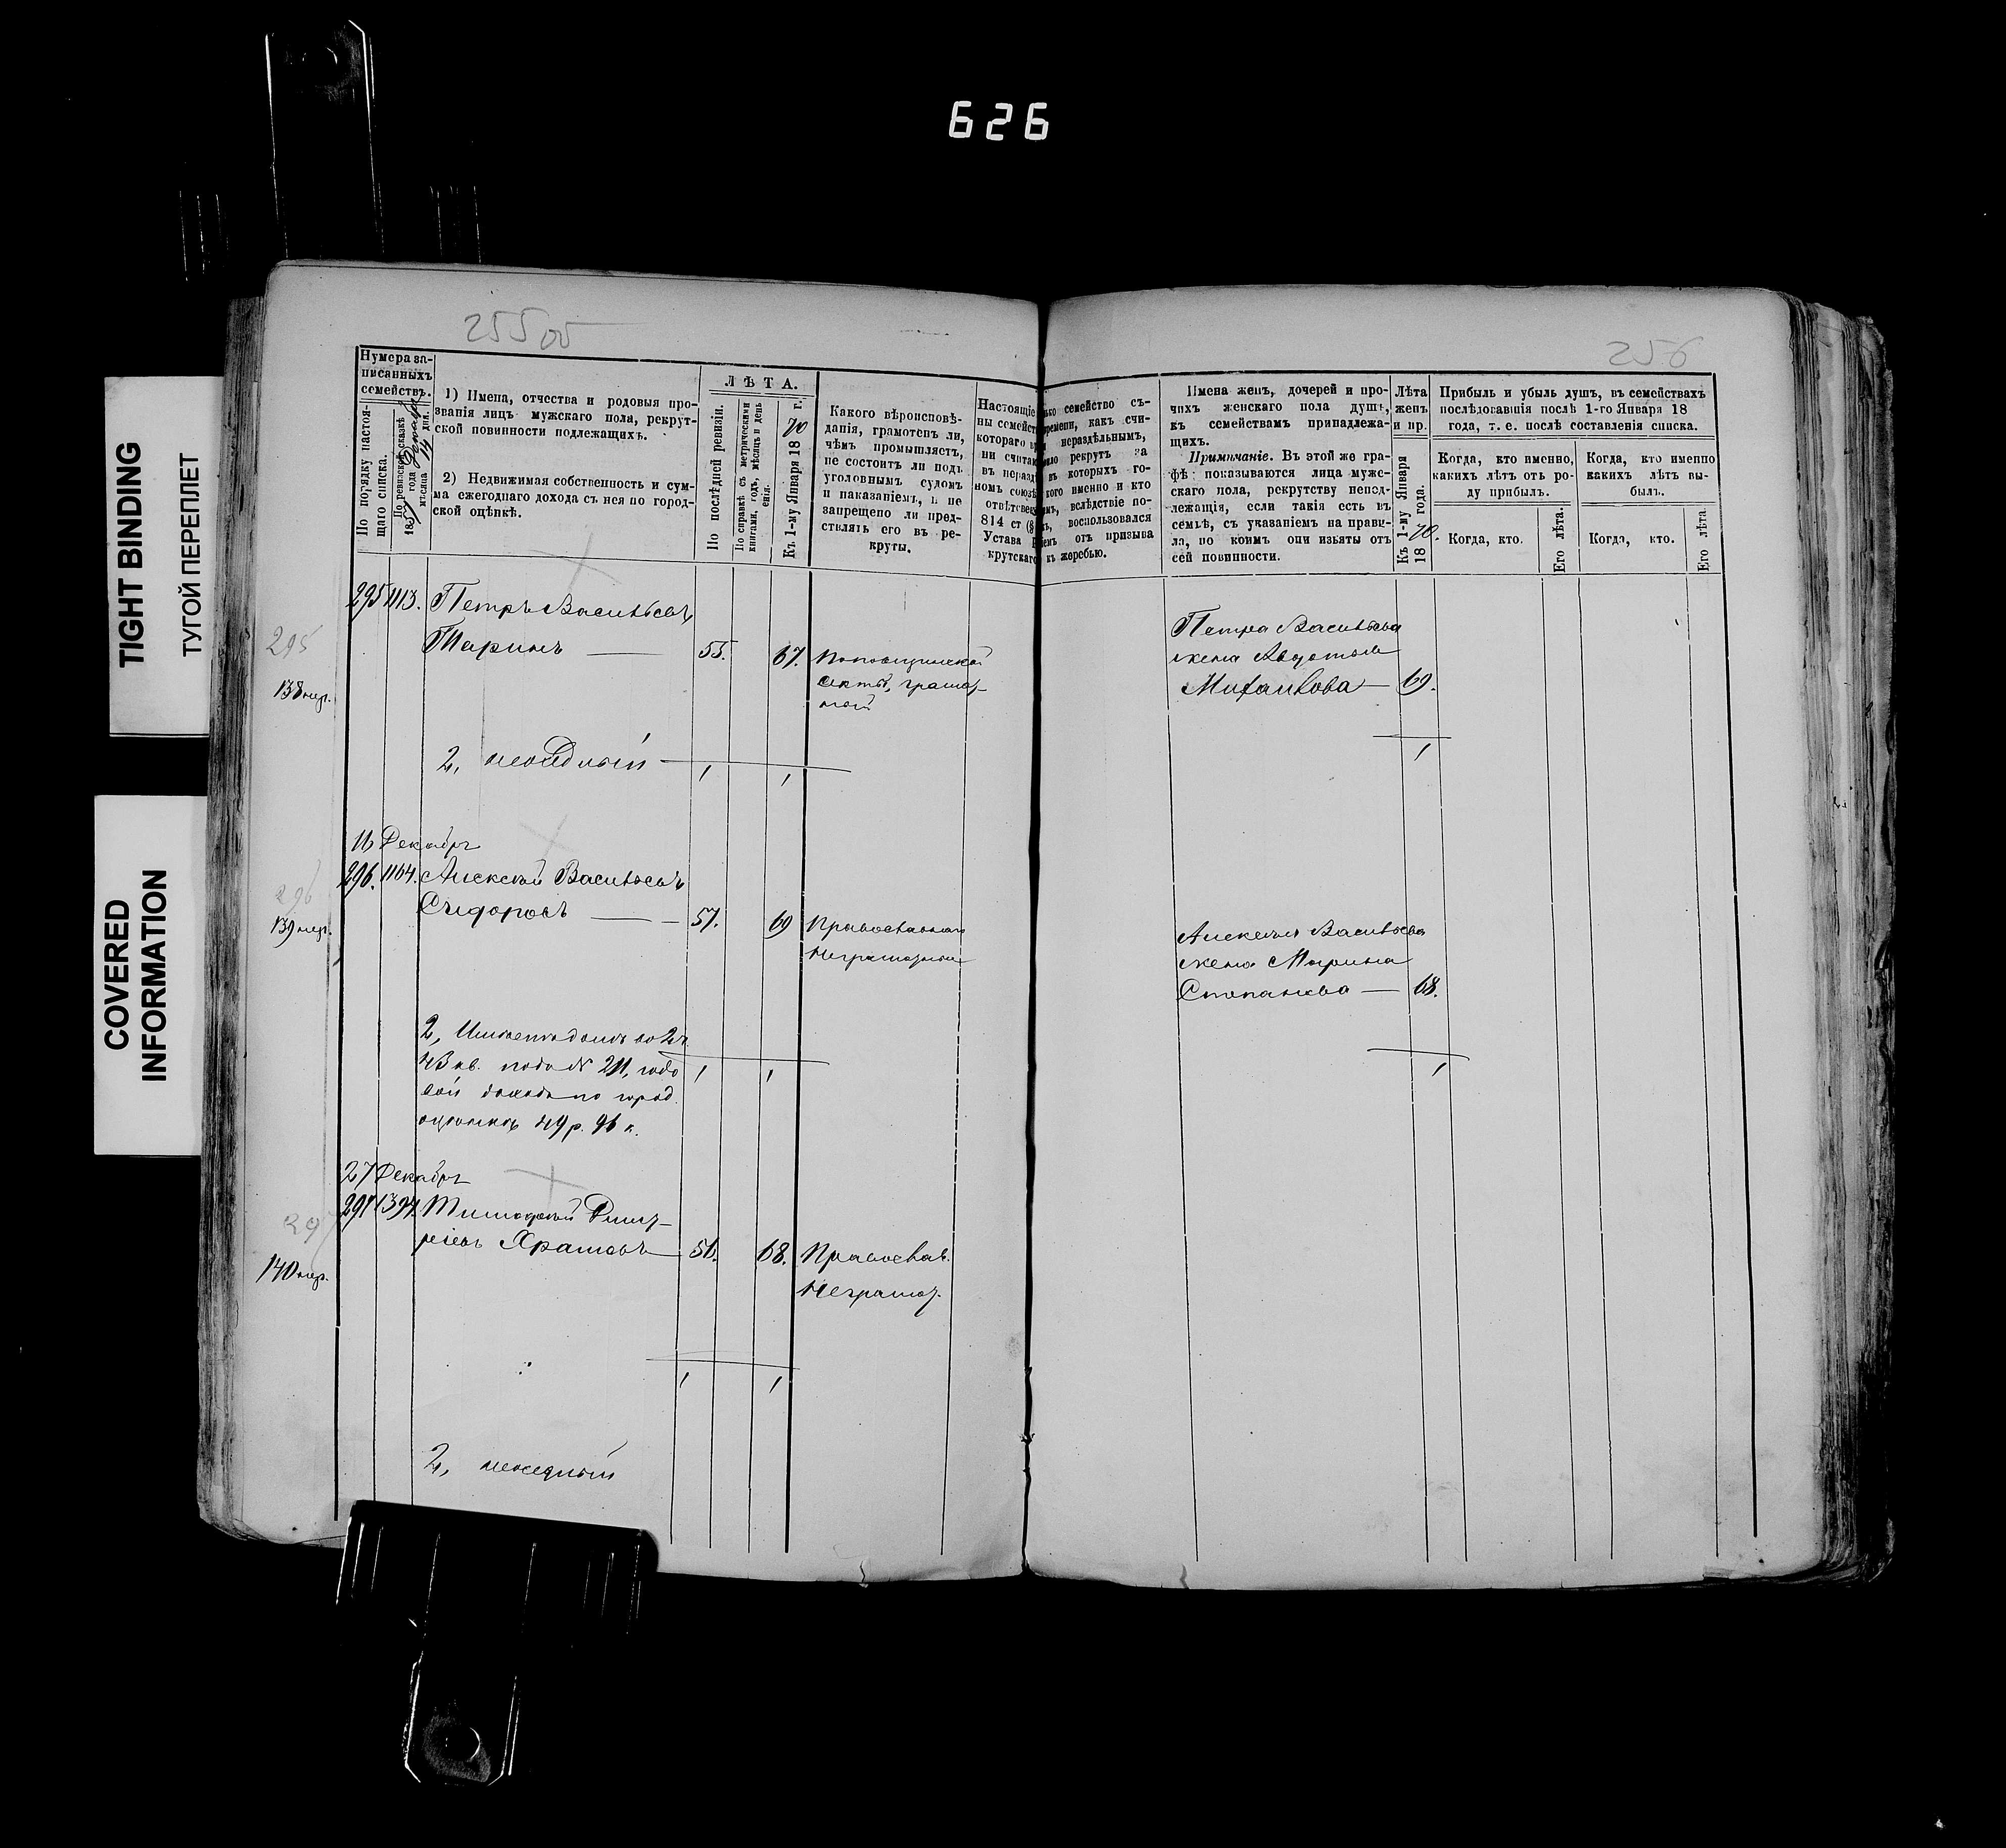 626
TIGHT BINDING
ТУГОЙ ПЕРЕПЛЕТ
COVERED
INFORMATION
255 об
256
Нумера за-
писанныхъ
семействъ.
По порядку настоя-
щаго списка.
По ревизской сказкѣ
1857 года
мѣсяца 14 дня.
1) Имена, отчества и родовыя про-
званія лицъ мужскаго пола, рекрут-
ской повинности подлежащихъ.
2) Недвижимая собственность и сум-
ма ежегоднаго дохода съ нея по город-
ской оцѣнкѣ.
ЛѢТА.
По послѣдней ревизіи.
По справкѣ съ метрическими
книгами, годъ, мѣсяцъ и день
Къ 1-му Января 1870 г.
Какого вѣроисповѣ-
данія, грамотенъ ли,
чѣмъ промышляетъ,
не состоитъ ли подъ
уголовнымъ судомъ
и наказаніемъ, и не
запрещено ли пред-
ставлять его въ ре-
круты.
Настоящіе
ны семейст
котораго
ни считаю
въ нераз
номъ союзѣ
отвѣтствен
814 ст
Устава
крутскаго
семейство съ-
времени, какъ счи-
нераздѣльнымъ,
рекрутъ за
въ которыхъ го-
кого именно и кто
вслѣдствіе по-
воспользовался
отъ призыва
къ жеребью.
Имена женъ, дочерей и про-
чихъ женскаго пола душъ,
къ семействамъ принадлежа-
щихъ.
Примѣчаніе. Въ этой же гра-
фѣ показываются лица муж-
скаго пола, рекрутству непод-
лежащія, если такія есть въ
семьѣ, съ указаніемъ на прави-
ла, по коимъ они изъяты отъ
сей повинности.
Лѣта
женъ
и пр.
Къ 1-му Января
1870 года.
Прибыль и убыль душъ, въ семействахъ
послѣдовавшія послѣ 1-го Января 18
года, т. е. послѣ составленія списка.
Когда, кто именно,
какихъ лѣтъ отъ ро-
ду прибылъ.
Когда, кто именно
какихъ лѣтъ вы-
былъ.
Когда, кто.
Его лѣта.
Когда, кто.
Его лѣта.
295 1113. Петръ Васильевъ
295
Шаринъ — 55. 67. Поповщинской
секты, грамот-
ной
138 мѣр.
Петра Васильева
жена Авдотья
Михайлова — 69.
2, неосѣдлый — 1 1
1
16 Декабр
296. 1164. Алексѣй Васильевъ
296
Сидоровъ — 57. 69 Православнаго
Неграмотный
139 мѣр.
Алексѣя Васильева
жена Марина
Степанова — 68.
2, Имѣетъ домъ во 2 ч.
43 кв. подъ № 211, годо
вой доходъ по город.
оцѣнкѣ 49 р. 96 к.
1 1
1
27 Декабр
297 1397. Тимофей Дмит-
297
ріевъ Храмовъ — 56. 68. Православ.
Неграмот.
140 мѣр.
1 1
2, неосѣдлый